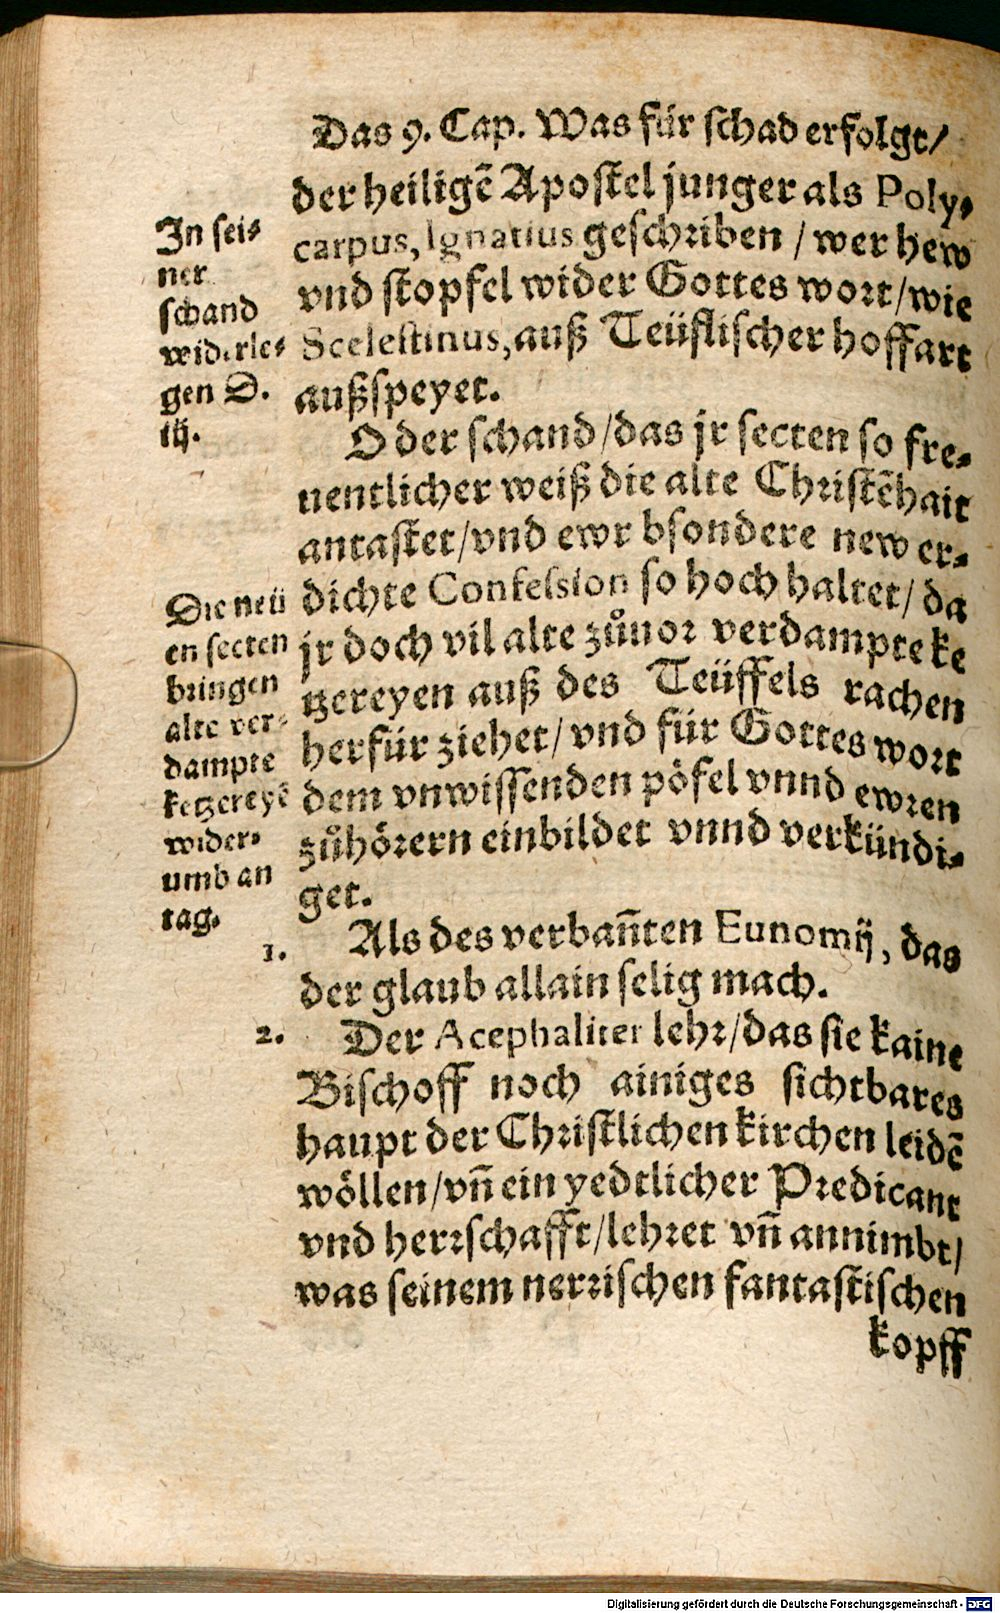 Das 9. Cap. Was für schad erfolgt/
der heiligē Apostel junger als Poly-
carpus, Ignatius geschriben / wer hew
vnd stopfel wider Gottes wort/wie
Scelestinus, auß Teüflischer hoffart
außspeyet.
In sei-
ner
schand
widerle-
gen D.
iij.
O der schand/das jr secten so fre-
uentlicher weiß die alte Christēhait
antastet/vnd ewr bsondere new er-
dichte Confession so hoch haltet/ da
jr doch vil alte zůuor verdampte ke
tzereyen auß des Teüffels rachen
herfür ziehet/ vnd für Gottes wort
dem vnwissenden pöfel vnnd ewren
zůhörern einbildet vnnd verkündi-
get.
Die neü
en secten
bringen
alte ver-
dampte
ketzereyē
wider-
umb an
tag.
1. Als des verbañten Eunomij, das
der glaub allain selig mach.
2. Der Acephaliter lehr/das sie kaine
Bischoff noch ainiges sichtbares
haupt der Christlichen kirchen leidē
wöllen/vñ ein yedtlicher Predicant
vnd herrschafft/lehret vñ annimbt/
was seinem nerrischen fantastischen
kopff
Digitalisierung gefördert durch die Deutsche Forschungsgemeinschaft - DFG